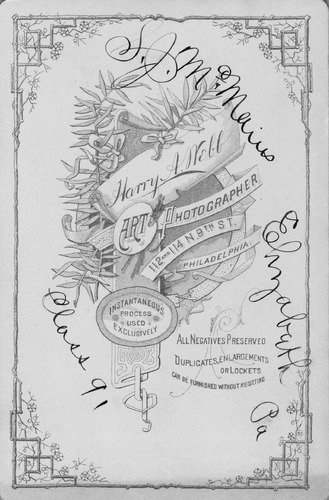 S. J. McMeins
Harry A Webb
ART & PHOTOGRAPHER
112 AND 114 N. 9TH ST.
PHILADELPHIA.
INSTANTANEOUS
PROCESS
USED
EXCLUSIVELY
ALL NEGATIVES PRESERVED
DUPLICATES, ENLARGEMENTS
OR LOCKETS
CAN BE FURNISHED WITHOUT RESITTING
Elizabeth Pa
Class 91